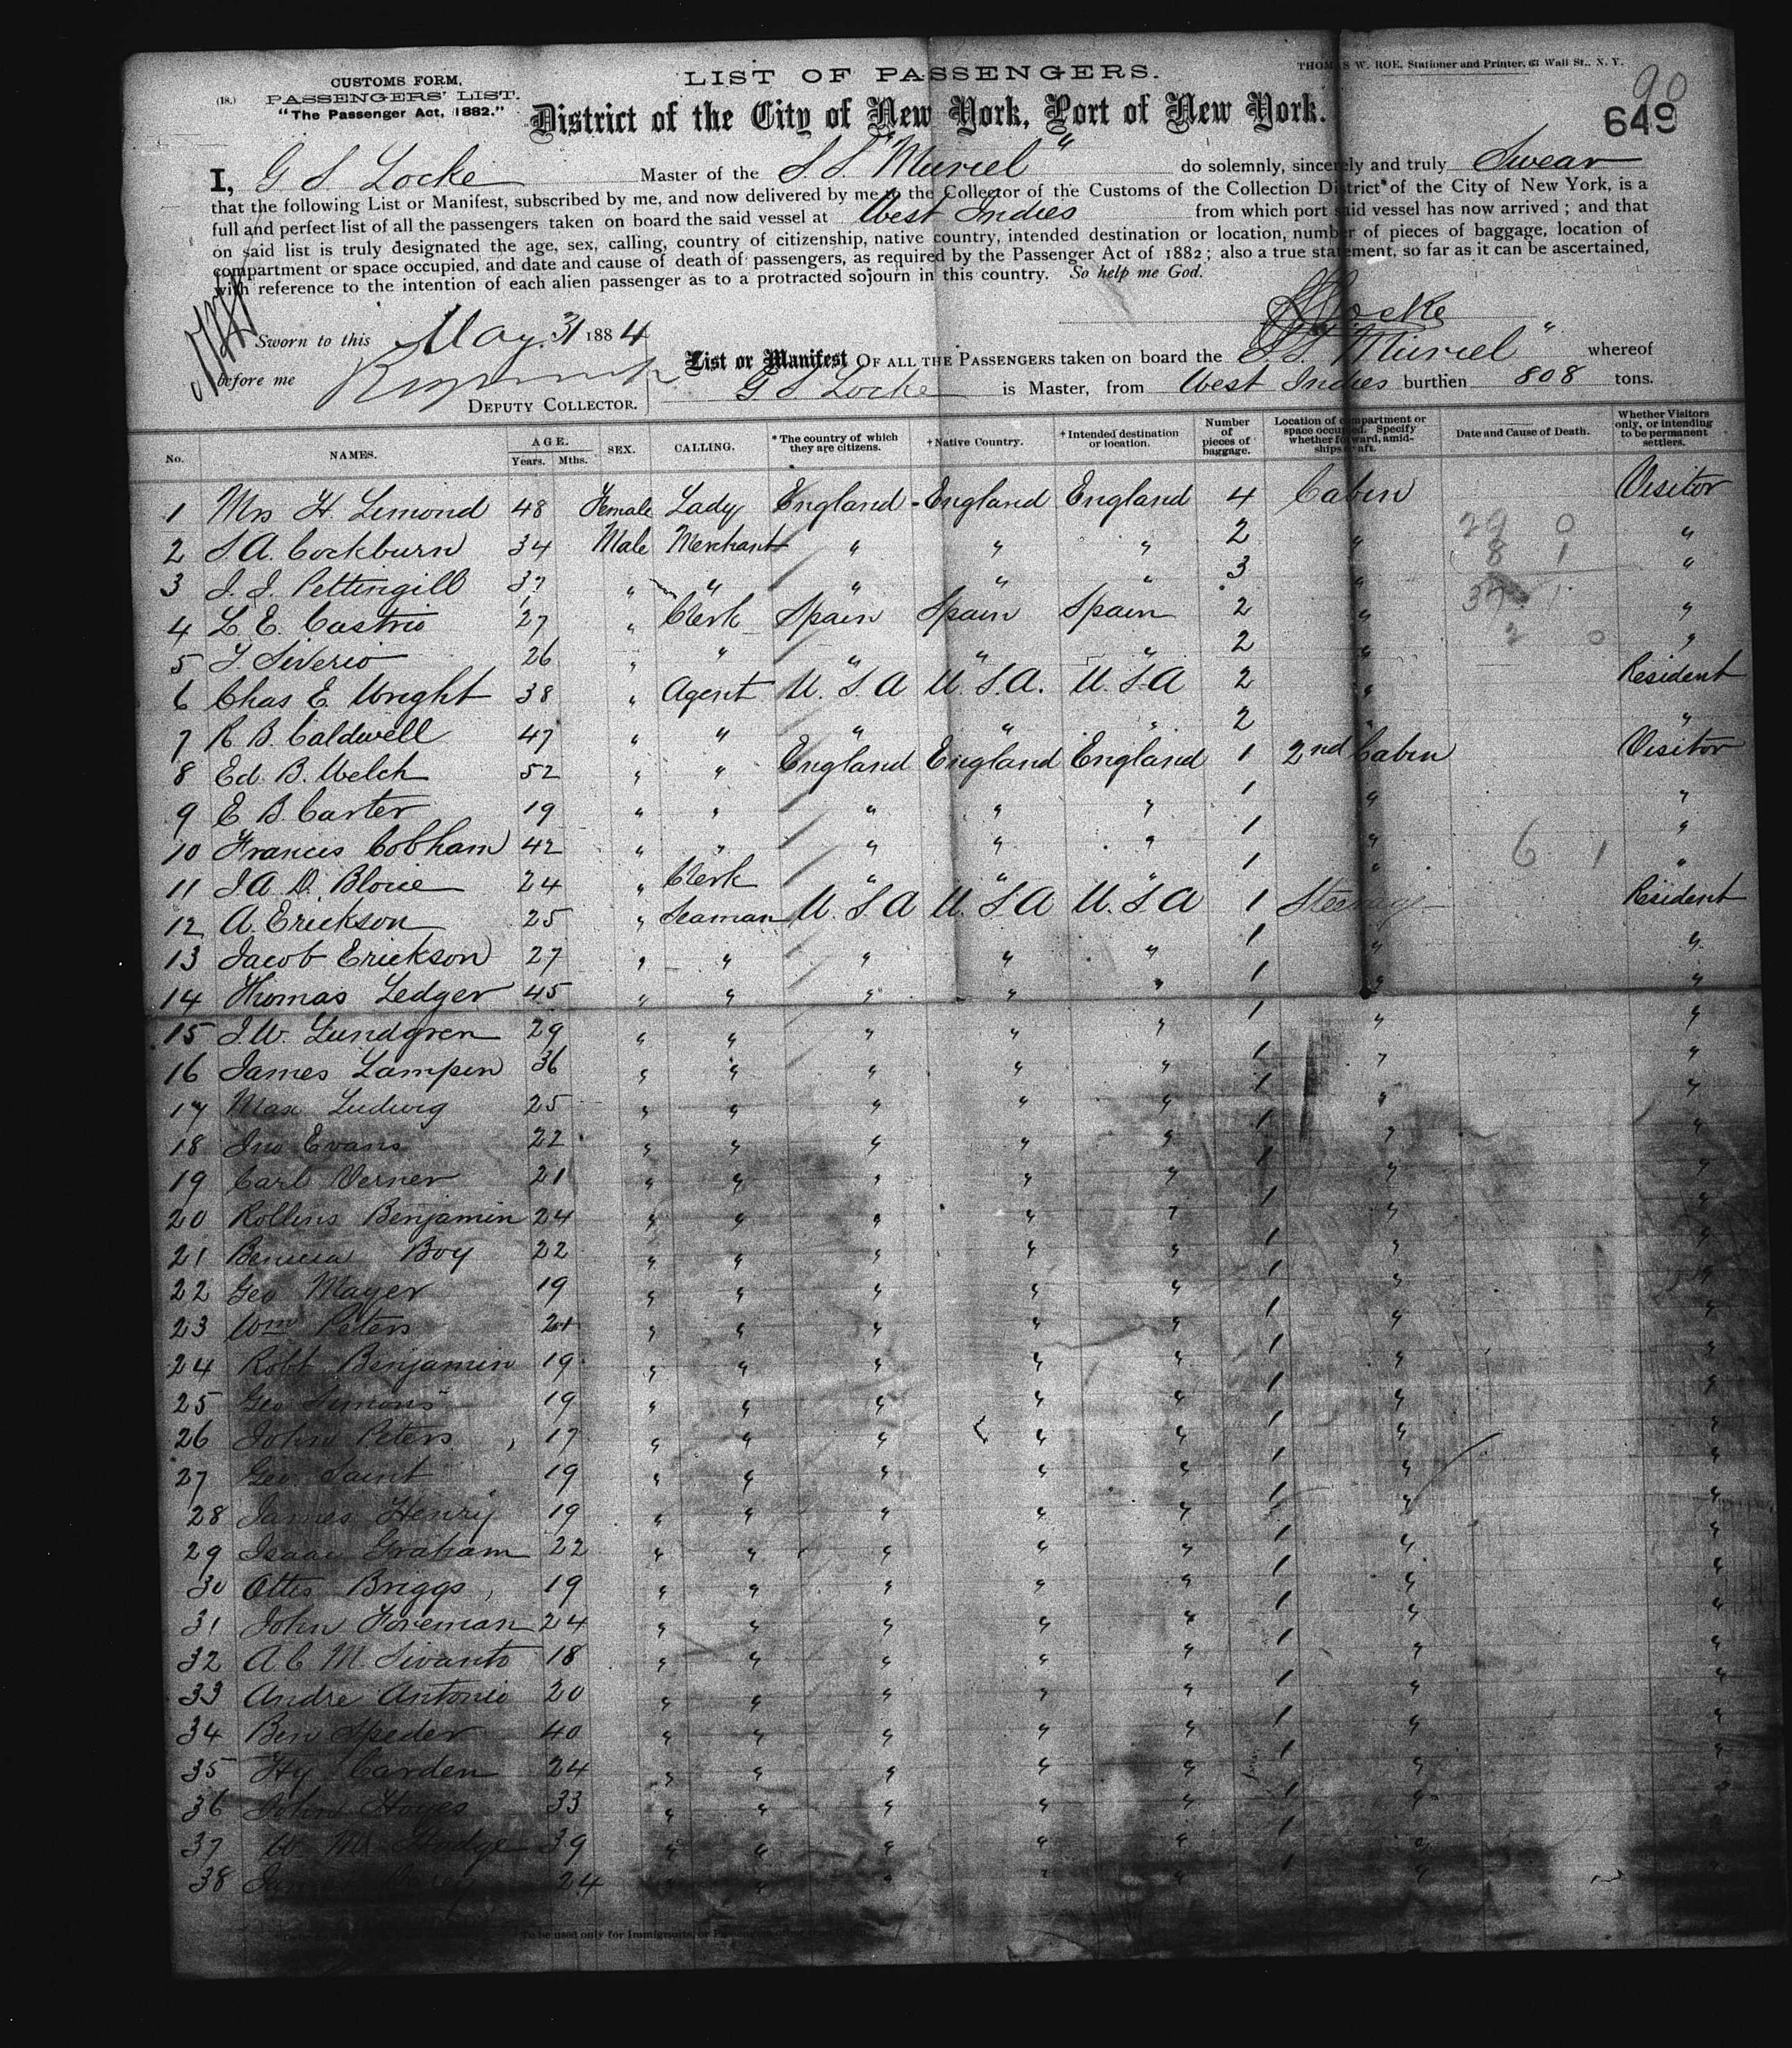 CUSTOMS FORM.
(18.) PASSENGERS' LIST.
"The Passenger Act, 1882."
LIST OF PASSENGERS.
THOMAS W. ROE, Stationer and Printer, 63 Wall St., N. Y.
90
649
District of the City of New York, Port of New York.
I, G S Locke Master of the S S "Muriel" do solemnly, sincerely and truly Swear
that the following List or Manifest, subscribed by me, and now delivered by me to the Collector of the Customs of the Collection District of the City of New York, is a
full and perfect list of all the passengers taken on board the said vessel at West Indies from which port said vessel has now arrived; and that
on said list is truly designated the age, sex, calling, country of citizenship, native country, intended destination or location, number of pieces of baggage, location of
compartment or space occupied, and date and cause of death of passengers, as required by the Passenger Act of 1882; also a true statement, so far as it can be ascertained,
with reference to the intention of each alien passenger as to a protracted sojourn in this country. So help me God.
Locke
Sworn to this May 31 1884
before me
DEPUTY COLLECTOR.
List or Manifest OF ALL THE PASSENGERS taken on board the S.S. Muriel" whereof
G S Locke is Master, from West Indies burthen 808 tons.
No. NAMES. AGE. Years. Mths. SEX. CALLING. *The country of which they are citizens. †Native Country. †Intended destination or location. Number of pieces of baggage. Location of compartment or space occupied. Specify whether forward, amidships or aft. Date and Cause of Death. Whether Visitors only, or intending to be permanent settlers.
1 Mrs H. Limond 48 Female Lady England England England 4 Cabin Visitor
2 S. A. Cockburn 34 Male Merchant " " " 2 " 29 0 "
3 J. J. Pettingill 37 " " " " " 3 " 8 1 "
4 L. E. Castrio 27 " Clerk Spain Spain Spain 2 " 37 1 "
5 Siverio 26 " " " " " 2 " 2 0 "
6 Chas E. Wright 38 " Agent U.S.A U.S.A. U.S.A 2 " Resident
7 R B. Caldwell 47 " " " " " 2 " "
8 Ed. B. Welch 52 " " England England England 1 2nd Cabin Visitor
9 E B. Carter 19 " " " " " 1 " "
10 Francis Cobham 42 " " " " " 1 " 6 1 "
11 J. A. D. 24 " Clerk " " " 1 " "
12 A. Erickson 25 " Seaman U.S.A U.S.A U.S.A 1 Steerage Resident
13 Jacob Erickson 27 " " " " " 1 " "
14 Thomas Ledger 45 " " " " " 1 " "
15 J. W. Lundgren 29 " " " " " 1 " "
16 James Lampen 36 " " " " " 1 " "
17 Max Ludwig 25 " " " " " 1 " "
18 Jno Evans 22 " " " " " 1 " "
19 Carl Verner 21 " " " " " 1 " "
20 Rollins Benjamin 24 " " " " " 1 " "
21 Boy 22 " " " " " 1 " "
22 Geo Mayer 19 " " " " " 1 " "
23 Wm Peters 21 " " " " " 1 " "
24 Robt Benjamin 19 " " " " " 1 " "
25 Geo Simons 19 " " " " " 1 " "
26 John Peters 17 " " " " " 1 " "
27 Geo Saint 19 " " " " " 1 " "
28 James Henry 19 " " " " " 1 " "
29 Isaac Graham 22 " " " " " 1 " "
30 Otto Briggs 19 " " " " " 1 " "
31 John Foreman 24 " " " " " 1 " "
32 A C M. Sivanto 18 " " " " " 1 " "
33 Andre Antonio 20 " " " " " 1 " "
34 Ben Speder 40 " " " " " 1 " "
35 Hy Carden 24 " " " " " 1 " "
36 John Hayes 33 " " " " " 1 " "
37 Hodge 39 " " " " " 1 " "
38 24 " " " " " 1 " "
To be used only for Immigrants, or